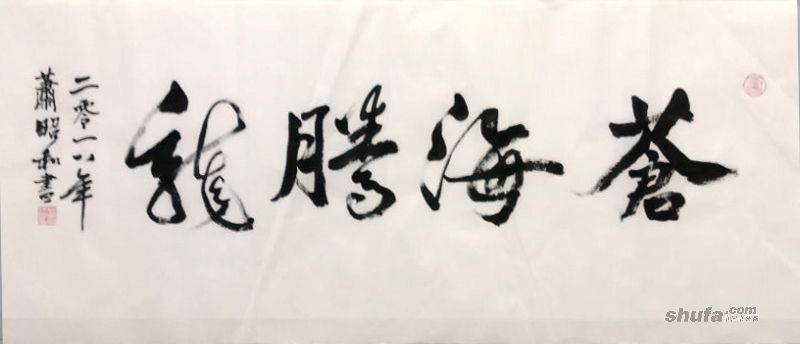 蒼海騰龍
二零一八年
蕭昭和書
shufa.com